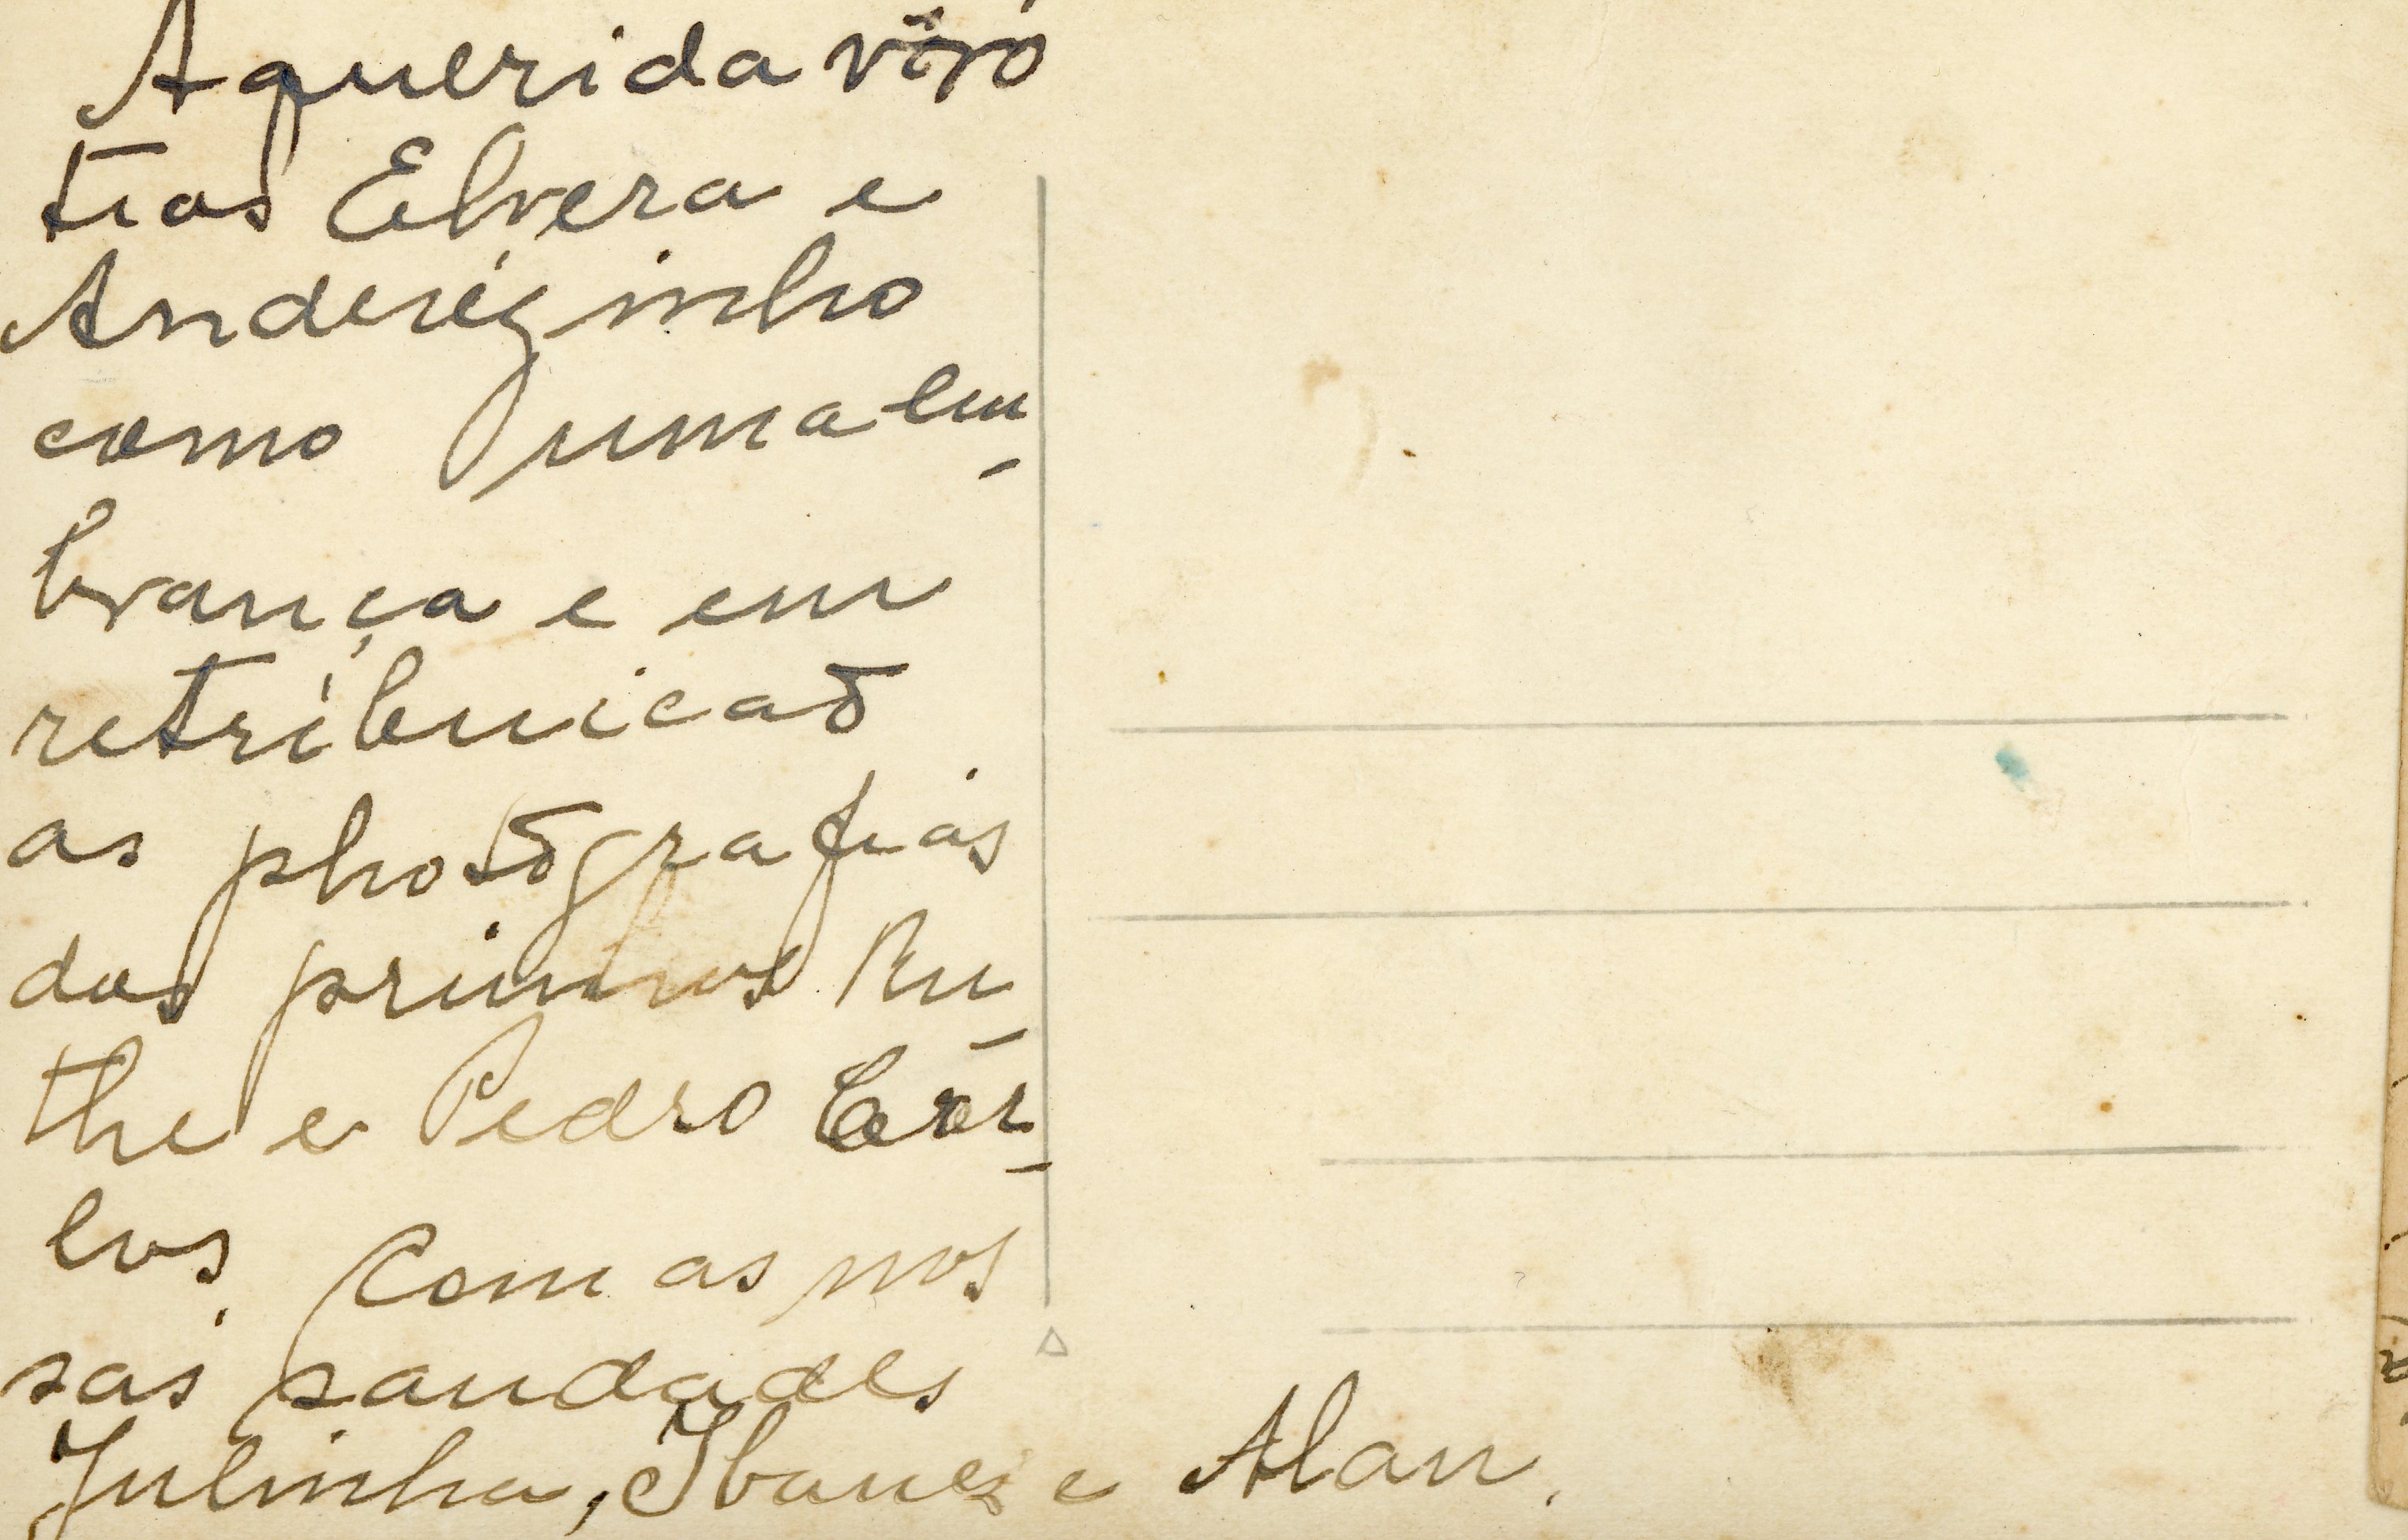 A querida vóvó
tias Elvera e
Anderézinho
como uma lem-
brança e em
retribuicaõ
as photografias
dos primos Ru-
the e Pedro Car-
los. Com as nos
sas saudades
Julinha, Ibanez e Alan.